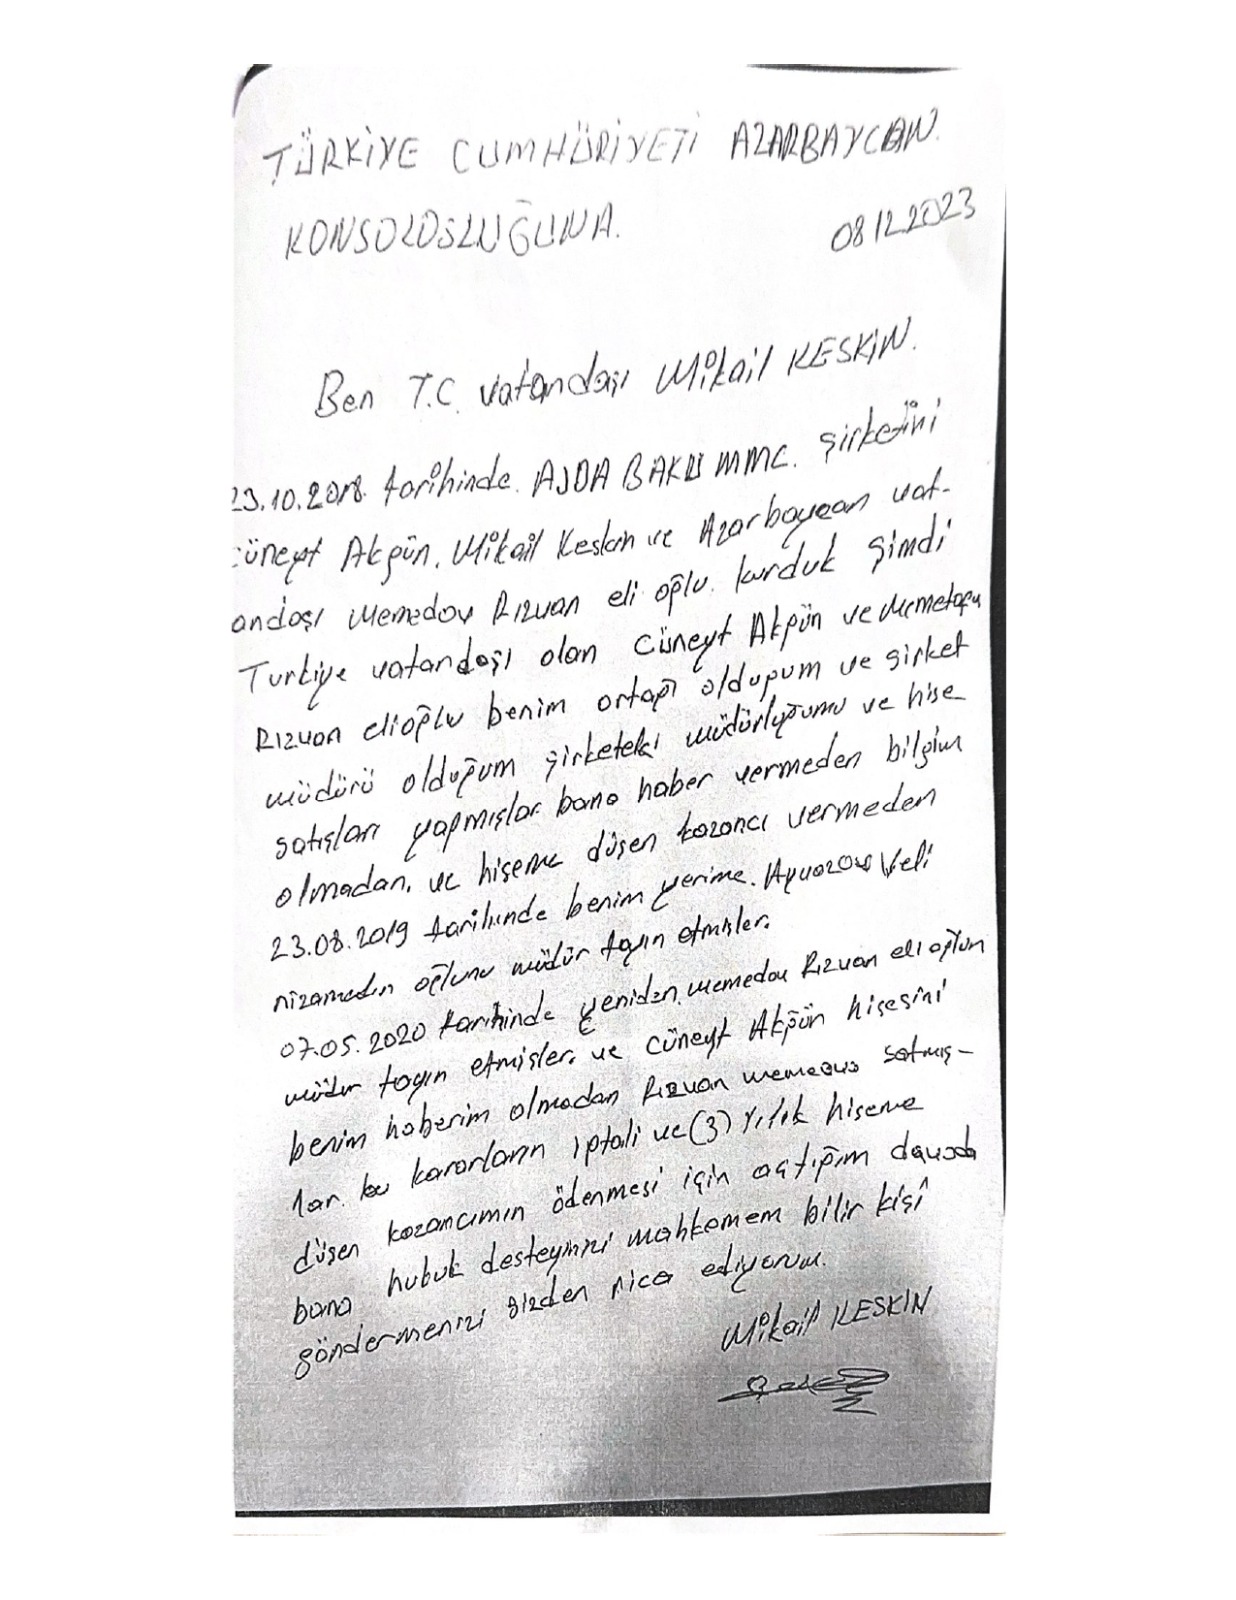 TÜRKİYE CUMHÜRİYETİ AZARBAYCAN.
KONSOLOSLUĞUNA. 08.12.2023
Ben T.C. vatandaşı Mikail KESKİN.
23.10.2018. tarihinde. AJDA BAKU MMC. şirketini
cüneyt Akgün. Mikail Keskin ve Azarbaycan vat-
andaşı Memedov Rızvan eli oğlu. kurduk şimdi
Turkiye vatandaşı olan Cüneyt Akgün ve
Rızvan elioğlu benim ortağı olduğum ve şirket
müdürü olduğum şirketeki müdürlüğümü ve hise
satışları yapmışlar. bana haber vermeden bilgim
olmadan. ve hiseme düşen kazancı vermeden
23.08.2019 tarihinde benim yerime. Ayvazov Veli
nizamedin oğlunu müdür tayin etmişler.
07.05.2020 tarihinde yeniden. memedov Rızvan eli oğlun
müdür tayin etmişler. ve cüneyt Akgün hisesini
benim haberim olmadan Rızvan satmış-
lar. bu kararların iptali ve (3) yılık hiseme
düşen kazancımın ödenmesi için açtığım davada
bana hukuk desteyinizi mahkemem bilir kişi
göndermenizi sizden rica ediyorum.
Mikail KESKİN